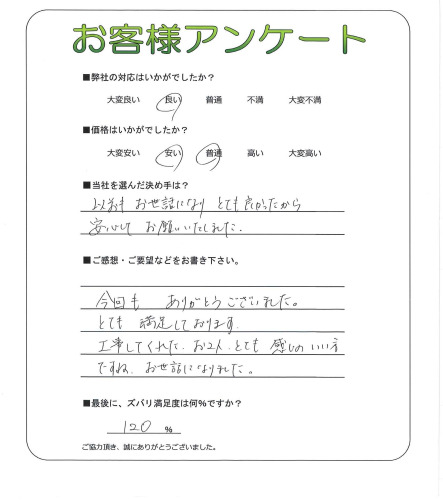 お客様アンケート
■弊社の対応はいかがでしたか？
大変良い 良い 普通 不満 大変不満
■価格はいかがでしたか？
大変安い 安い 普通 高い 大変高い
■当社を選んだ決め手は？
以前も お世話になり とても良かったから
安心して お願いいたしました.
■ご感想・ご要望などをお書き下さい。
今回も ありがとうございました。
とても 満足しております.
工事してくれた. お2人. とても 感じの いい方
ですね. お世話になりました。
■最後に、ズバリ満足度は何%ですか？
120 %
ご協力頂き、誠にありがとうございました。